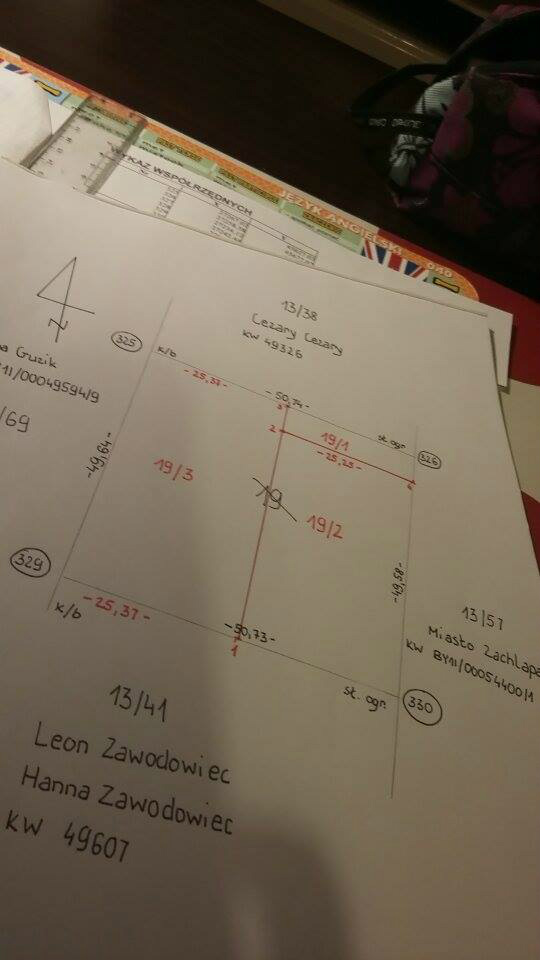 JĘZYK ANGIELSKI
040
WYKAZ WSPÓŁRZĘDNYCH
N
13/38
Cezary Cezary
KW 49326
325
K/b
- 25,37 -
- 50,74 -
3
2
19/1
- 25,25 -
st. ogr.
326
4
Guzik
/00049594/9
/69
- 49,64 -
19/3
19
19/2
- 49,58 -
329
K/b
- 25,37 -
- 50,73 -
1
st. ogr.
330
13/57
Miasto Zachlapa
KW BY1I/00054400/1
13/41
Leon Zawodowiec
Hanna Zawodowiec
KW 49607